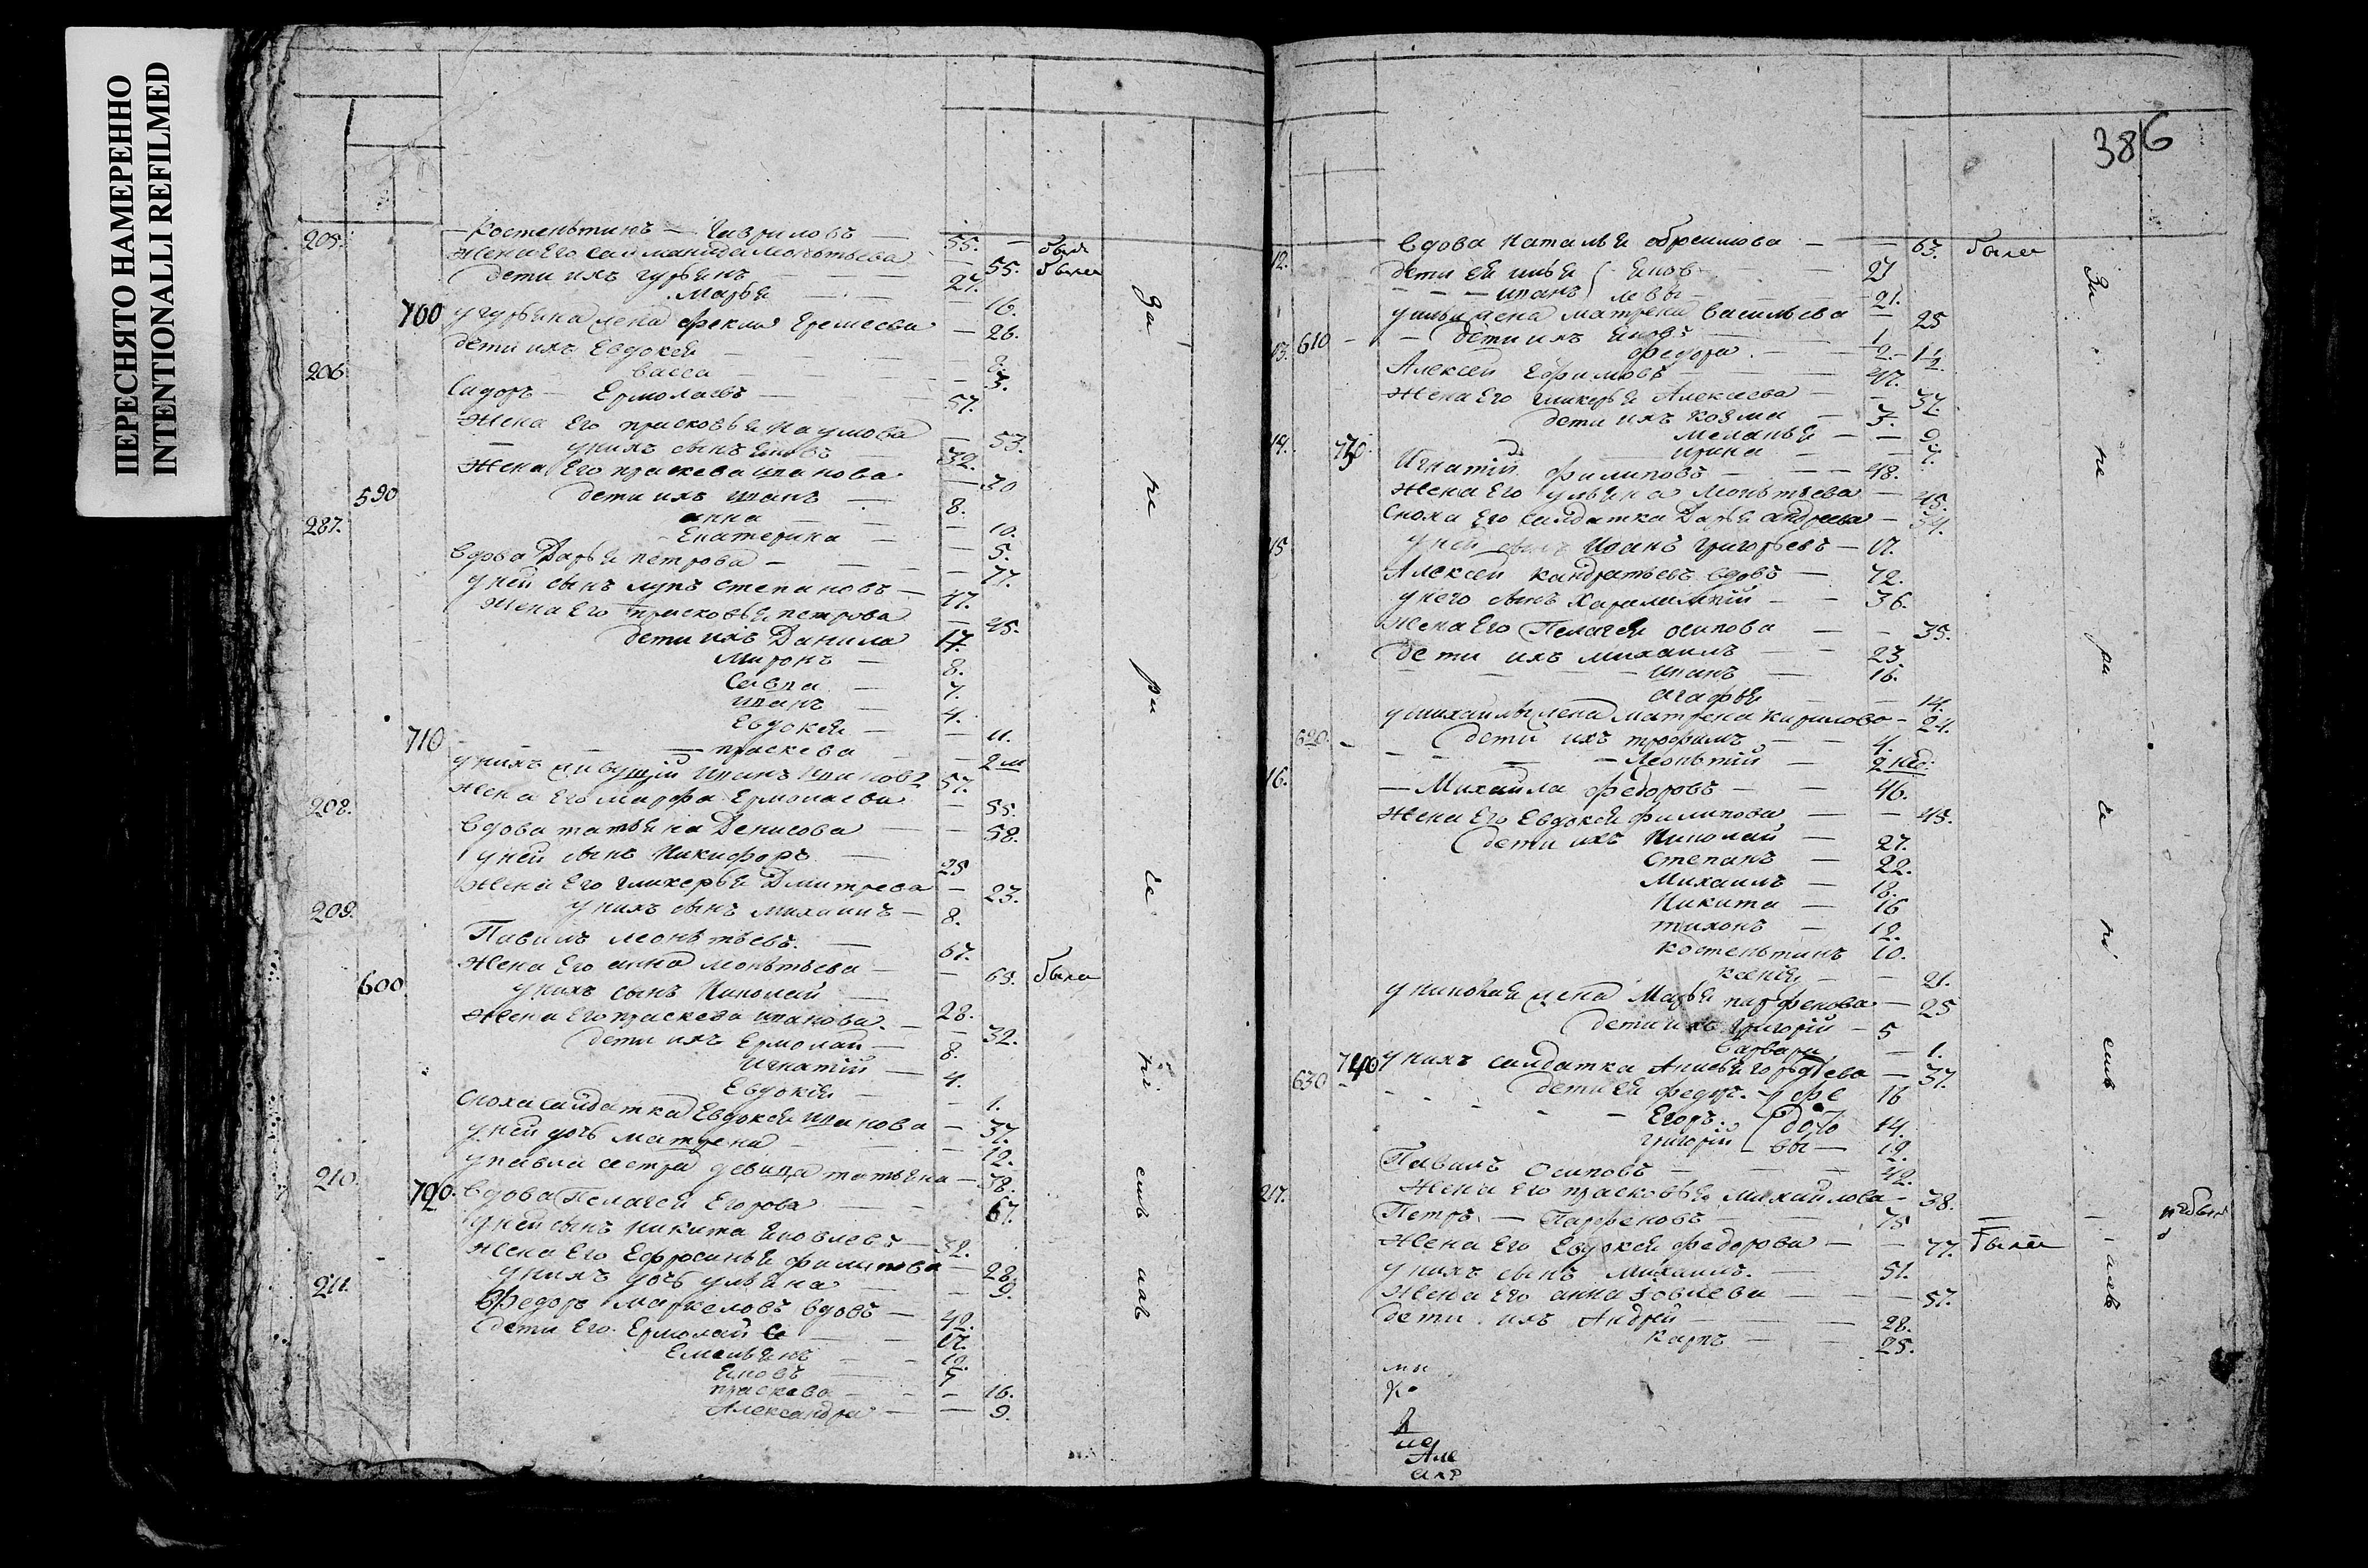 ПЕРЕСНЯТО НАМЕРЕННО
INTENTIONALLI REFILMED
205. Костенътинъ — Гавриловъ — 55. — былъ
Жена Его Монътьева — 55. была
Дети ихъ Гурьянъ — 27.
Марья — 16.
700 У гурьяна жена фекла — 26.
Дети ихъ Евдокея — 8.
васса — 3.
206 Сидоръ — Ермолаевъ — 57.
Жена Его прасковья наумова — 53.
у нихъ сынъ Яковъ 32.
Жена Его праскева иванова — 30
590 Дети ихъ иванъ — 8.
анна — 10.
Екатерина — 5.
287. Вдова Дарья петрова — 77.
У ней сынъ лупъ степановъ — 47.
Жена Его прасковья петрова — 45.
Дети ихъ Данила 17.
Миронъ — 8.
Савва — 7.
иванъ — 4.
Евдокея — 11.
710 — праскева — 2 м
У нихъ живущiй иванъ 57.
Жена Его марфа Ермолаева — 55.
208. Вдова татьяна Денисова — 58.
У ней сынъ Никифоръ — 25
Жена Его гликерья Дмитрева — 23.
у нихъ сынъ михаилъ — 8.
209. Павилъ леонътьевъ. — 67.
Жена Его анна — 65. была
600 у нихъ сынъ Николай — 28.
Жена Его праскева иванова. — 32.
Дети ихъ Ермолай — 8.
Игнатiй — 4.
Евдокiя — 1.
Сноха салдатка Евдокея иванова — 37.
У ней дочь матрена — 12.
у павла сестра девица татьяна — 78.
210. 720. Вдова Пелагея Егорова — 67.
У ней сынъ никита Яковлевъ — 32.
Жена Его Ефросинья филипова — 28.
у нихъ дочь ульяна — 9.
211. Федоръ маркеловъ вдовъ — 42.
Дети Его Ермолай — 17.
Емельянъ — 12.
Яковъ — 7
праскева — 16.
Александра — 9.
За не ра се нi емъ
386
12. Вдова наталья — 63. была
Дети Ея илья Яков 27
— иванъ левы 21.
у ильи жена матрена васильева — 25
13. 610 — Дети ихъ Яковъ — 1/2
федора. — 1 1/2
Алексей Ефимовъ — 47.
Жена Его гликерья Алексеева — 37.
Дети ихъ козма — 3.
меланья — 9.
14. 730. ирина — 7.
Игнатiй филиповъ — 48.
Жена Его ульяна — 45.
Сноха Его салдатка Дарья андреева — 34.
15 у ней сынъ Иванъ григорьевъ — 17.
Алексей кандратьевъ вдовъ — 72.
у него сынъ Харалампiй — 36.
Жена Его Пелагея осипова — 35.
Дети ихъ михаилъ — 23.
— иванъ — 16.
агафья — 14.
у михайлы жена матрена кирилова — 24.
620. Дети ихъ трофимъ — 4.
— Леонътiй — 2 нед.
16. — Михайла федоровъ — 46.
Жена Его Евдокея филипова — 45.
Дети ихъ Николай — 27.
Степанъ — 22.
Михаилъ — 18.
Никита — 16
тихонъ — 12.
костенътинъ 10.
ксенiя — 21.
у николая жена Марья парфенова — 25
Дети ихъ Григорiй — 5
варвара — 1.
630 740 у нихъ салдатка — 37.
Дети Ея федоръ фе 16
Егоръ. до 14.
григорiй вы — 12.
Павилъ осиповъ — 42.
Жена Его прасковья михайлова — 38.
217. Петръ — Парфеновъ — 75 — — небылъ
Жена Его Евдокея федорова — 77. была
у нихъ сынъ михаилъ. — 51.
Жена Его анна — 57.
Дети ихъ Андрей — 28.
карпъ — 25.
За не ра се нi емъ
Але